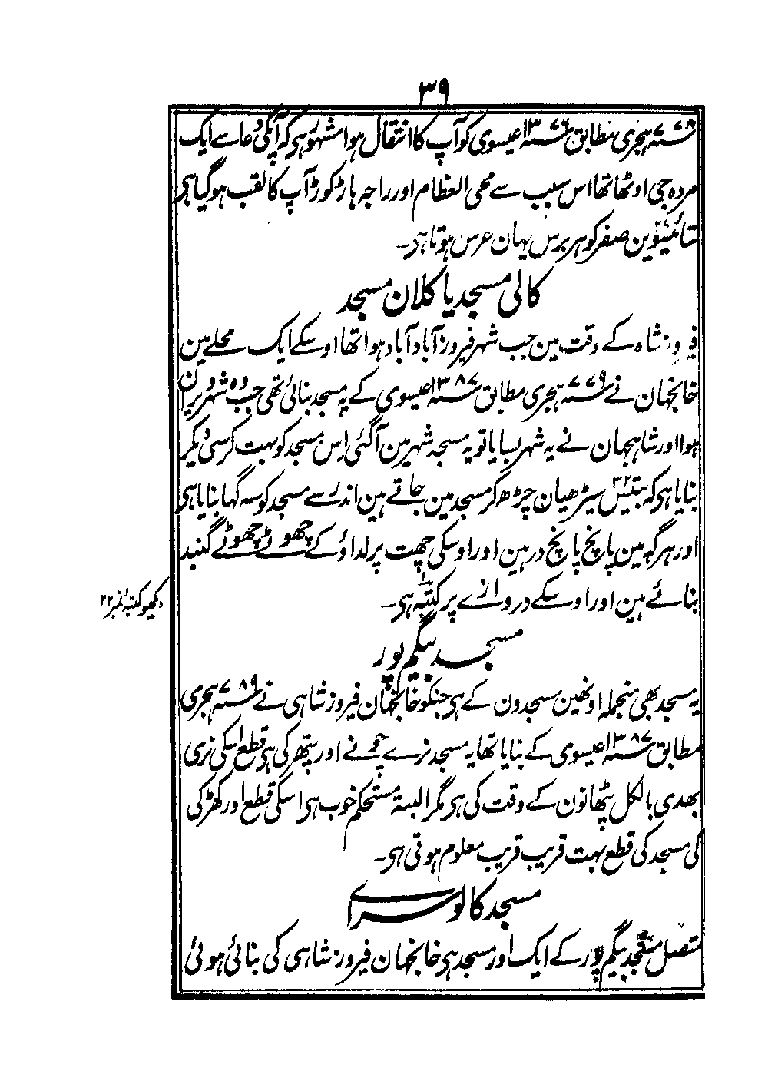 ۳۹
۷۷۸ سنہ ہجری مطابق ۱۳۷۶ سنہ عیسوی کو آپ کا انتقال ہوا مشہور ہی کہ آپکی دعا سے ایک
مردہ جی اوٹھا تھا اس سبب سے محی العظام اور راجہ ہاڑ کوڑ آپ کا لقب ہو گیا ہی
ستائیسوین صفر کو ہر برس یہان عرس ہوتا ہی۔
کالی مسجد یا کلان مسجد
فیروز شاہ کے وقت مین جب شہر فیروز آباد آباد ہوا تھا اوسکے ایک محلے مین
خانجہان نے ۷۷۹ سنہ ہجری مطابق ۱۳۸۷ سنہ عیسوی کے یہ مسجد بنائی تھی جب وہ شہر ویران
ہوا اور شاہجہان نے یہ شہر بسایا تو یہ مسجد شہر مین آگئی اس مسجد کو بہت کرسی دیکر
بنایا ہی کہ بتیس ۳۲ سیڑھیان چڑھ کر مسجد مین جاتے ہین اندر سے مسجد کو سہ گہا بنایا ہی
اور ہر گہ مین پانچ پانچ در ہین اور اوسکی چھت پر لداؤ کے چھوٹے چھوٹے گنبد
بنائے ہین اور اوسکے دروازے پر کتبہ ہی۔
دیکھو کتبہ نمبر ۲۲
مسجد بیگم پور
یہ مسجد بھی منجملہ اونھین مسجدون کے ہی جنکو خانجہان فیروز شاہی نے ۷۸۹ سنہ ہجری
مطابق ۱۳۸۷ سنہ عیسوی کے بنایا تھا یہ مسجد نرے چونے اور پتھر کی ہی قطع اسکی نری
بھدی بالکل پٹھانون کے وقت کی ہی مگر البتہ مستحکم خوب ہی اسکی قطع اور کھڑکی
کی مسجد کی قطع بہت قریب قریب معلوم ہوتی ہی۔
مسجد کالو سرای
متصل مسجد بیگم پور کے ایک اور مسجد ہی خانجہان فیروز شاہی کی بنائی ہوئی